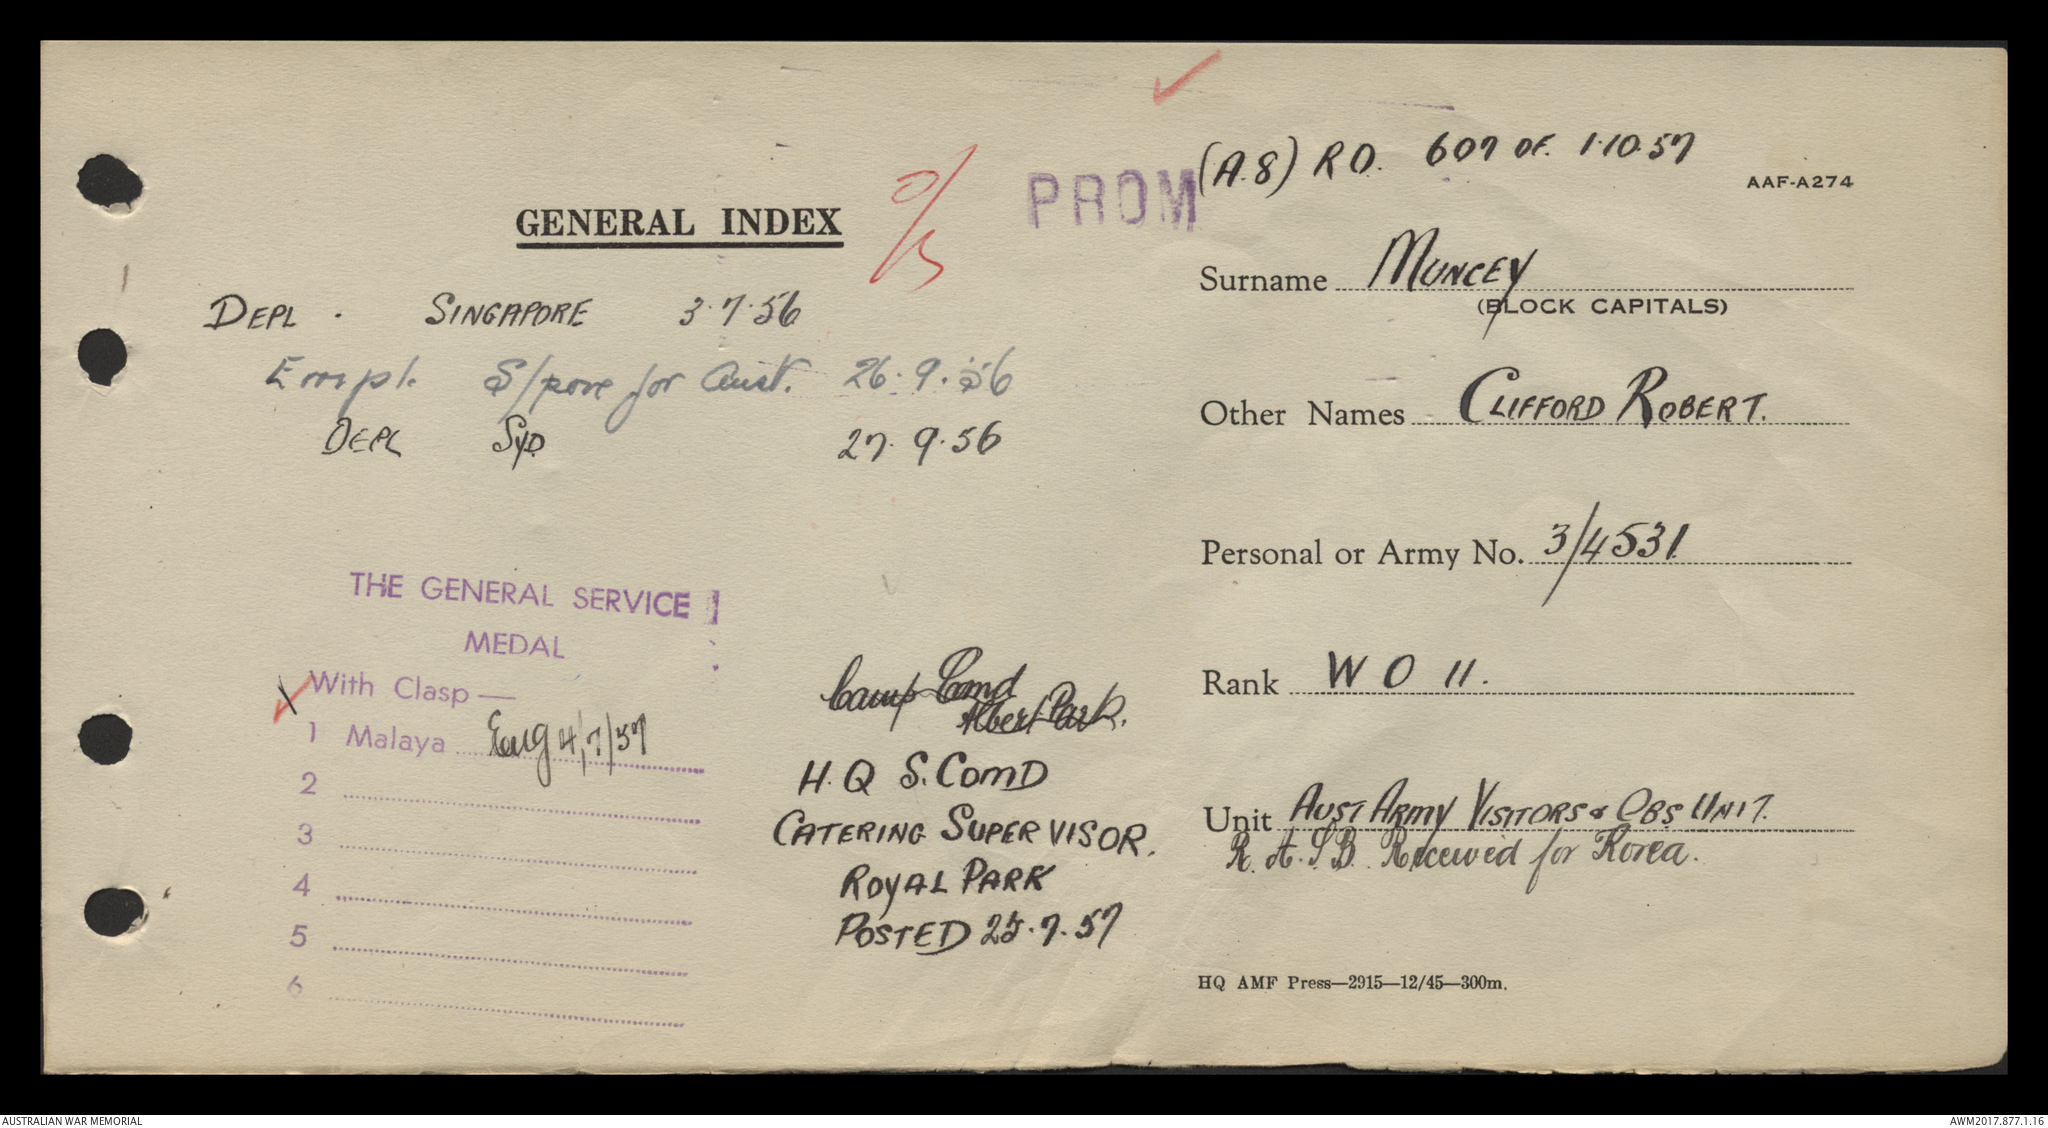 (A.8) RO. 607 OF. 1.10.57
PROM
AAF-A274
GENERAL INDEX
O/S
DEPL. SINGAPORE 3.7.56
Empl. S/pore for Aust. 26.9.56
DEPL SYD 27.9.56
THE GENERAL SERVICE
MEDAL
With Clasp—
1 Malaya Eng 4/7/57
2
3
4
5
6
Camp Comd
Albert Park.
H.Q S. COMD
CATERING SUPERVISOR.
ROYAL PARK
POSTED 25.7.57
Surname MUNCEY
(BLOCK CAPITALS)
Other Names CLIFFORD ROBERT.
Personal or Army No. 3/4531
Rank W O 11.
Unit AUST ARMY VISITORS & OBS UNIT.
R.A.S.B. Received for Korea.
HQ AMF Press—2915—12/45—300m.
AUSTRALIAN WAR MEMORIAL
AWM2017.877.1.16